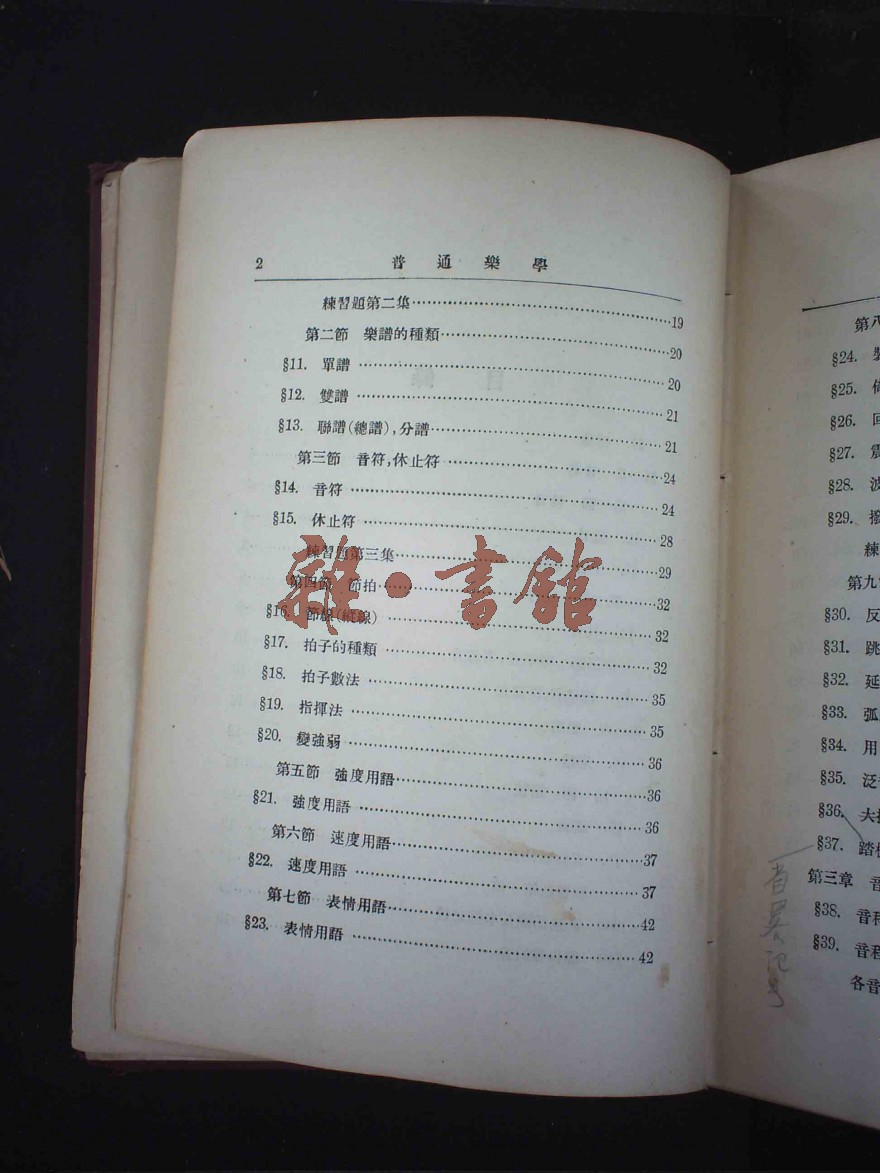 2 普通樂學
練習題第二集……19
第二節 樂譜的種類……20
§11. 單譜……20
§12. 雙譜……21
§13. 聯譜(總譜),分譜……21
第三節 音符,休止符……24
§14. 音符……24
§15. 休止符……28
練習題第三集……29
第四節 節拍……32
§16. 節線(縱線)……32
§17. 拍子的種類……32
§18. 拍子數法……35
§19. 指揮法……35
§20. 變強弱……36
第五節 強度用語……36
§21. 強度用語……36
第六節 速度用語……37
§22. 速度用語……37
第七節 表情用語……42
§23. 表情用語……42
雜·書館
第八
§24.
§25.
§26. 回
§27. 震
§28. 波
§29. 撥
練
第九
§30. 反
§31. 跳
§32. 延
§33. 弧
§34. 用
§35. 泛
§36.
§37. 踏
第三章 音
§38. 音程
§39. 音程
各音